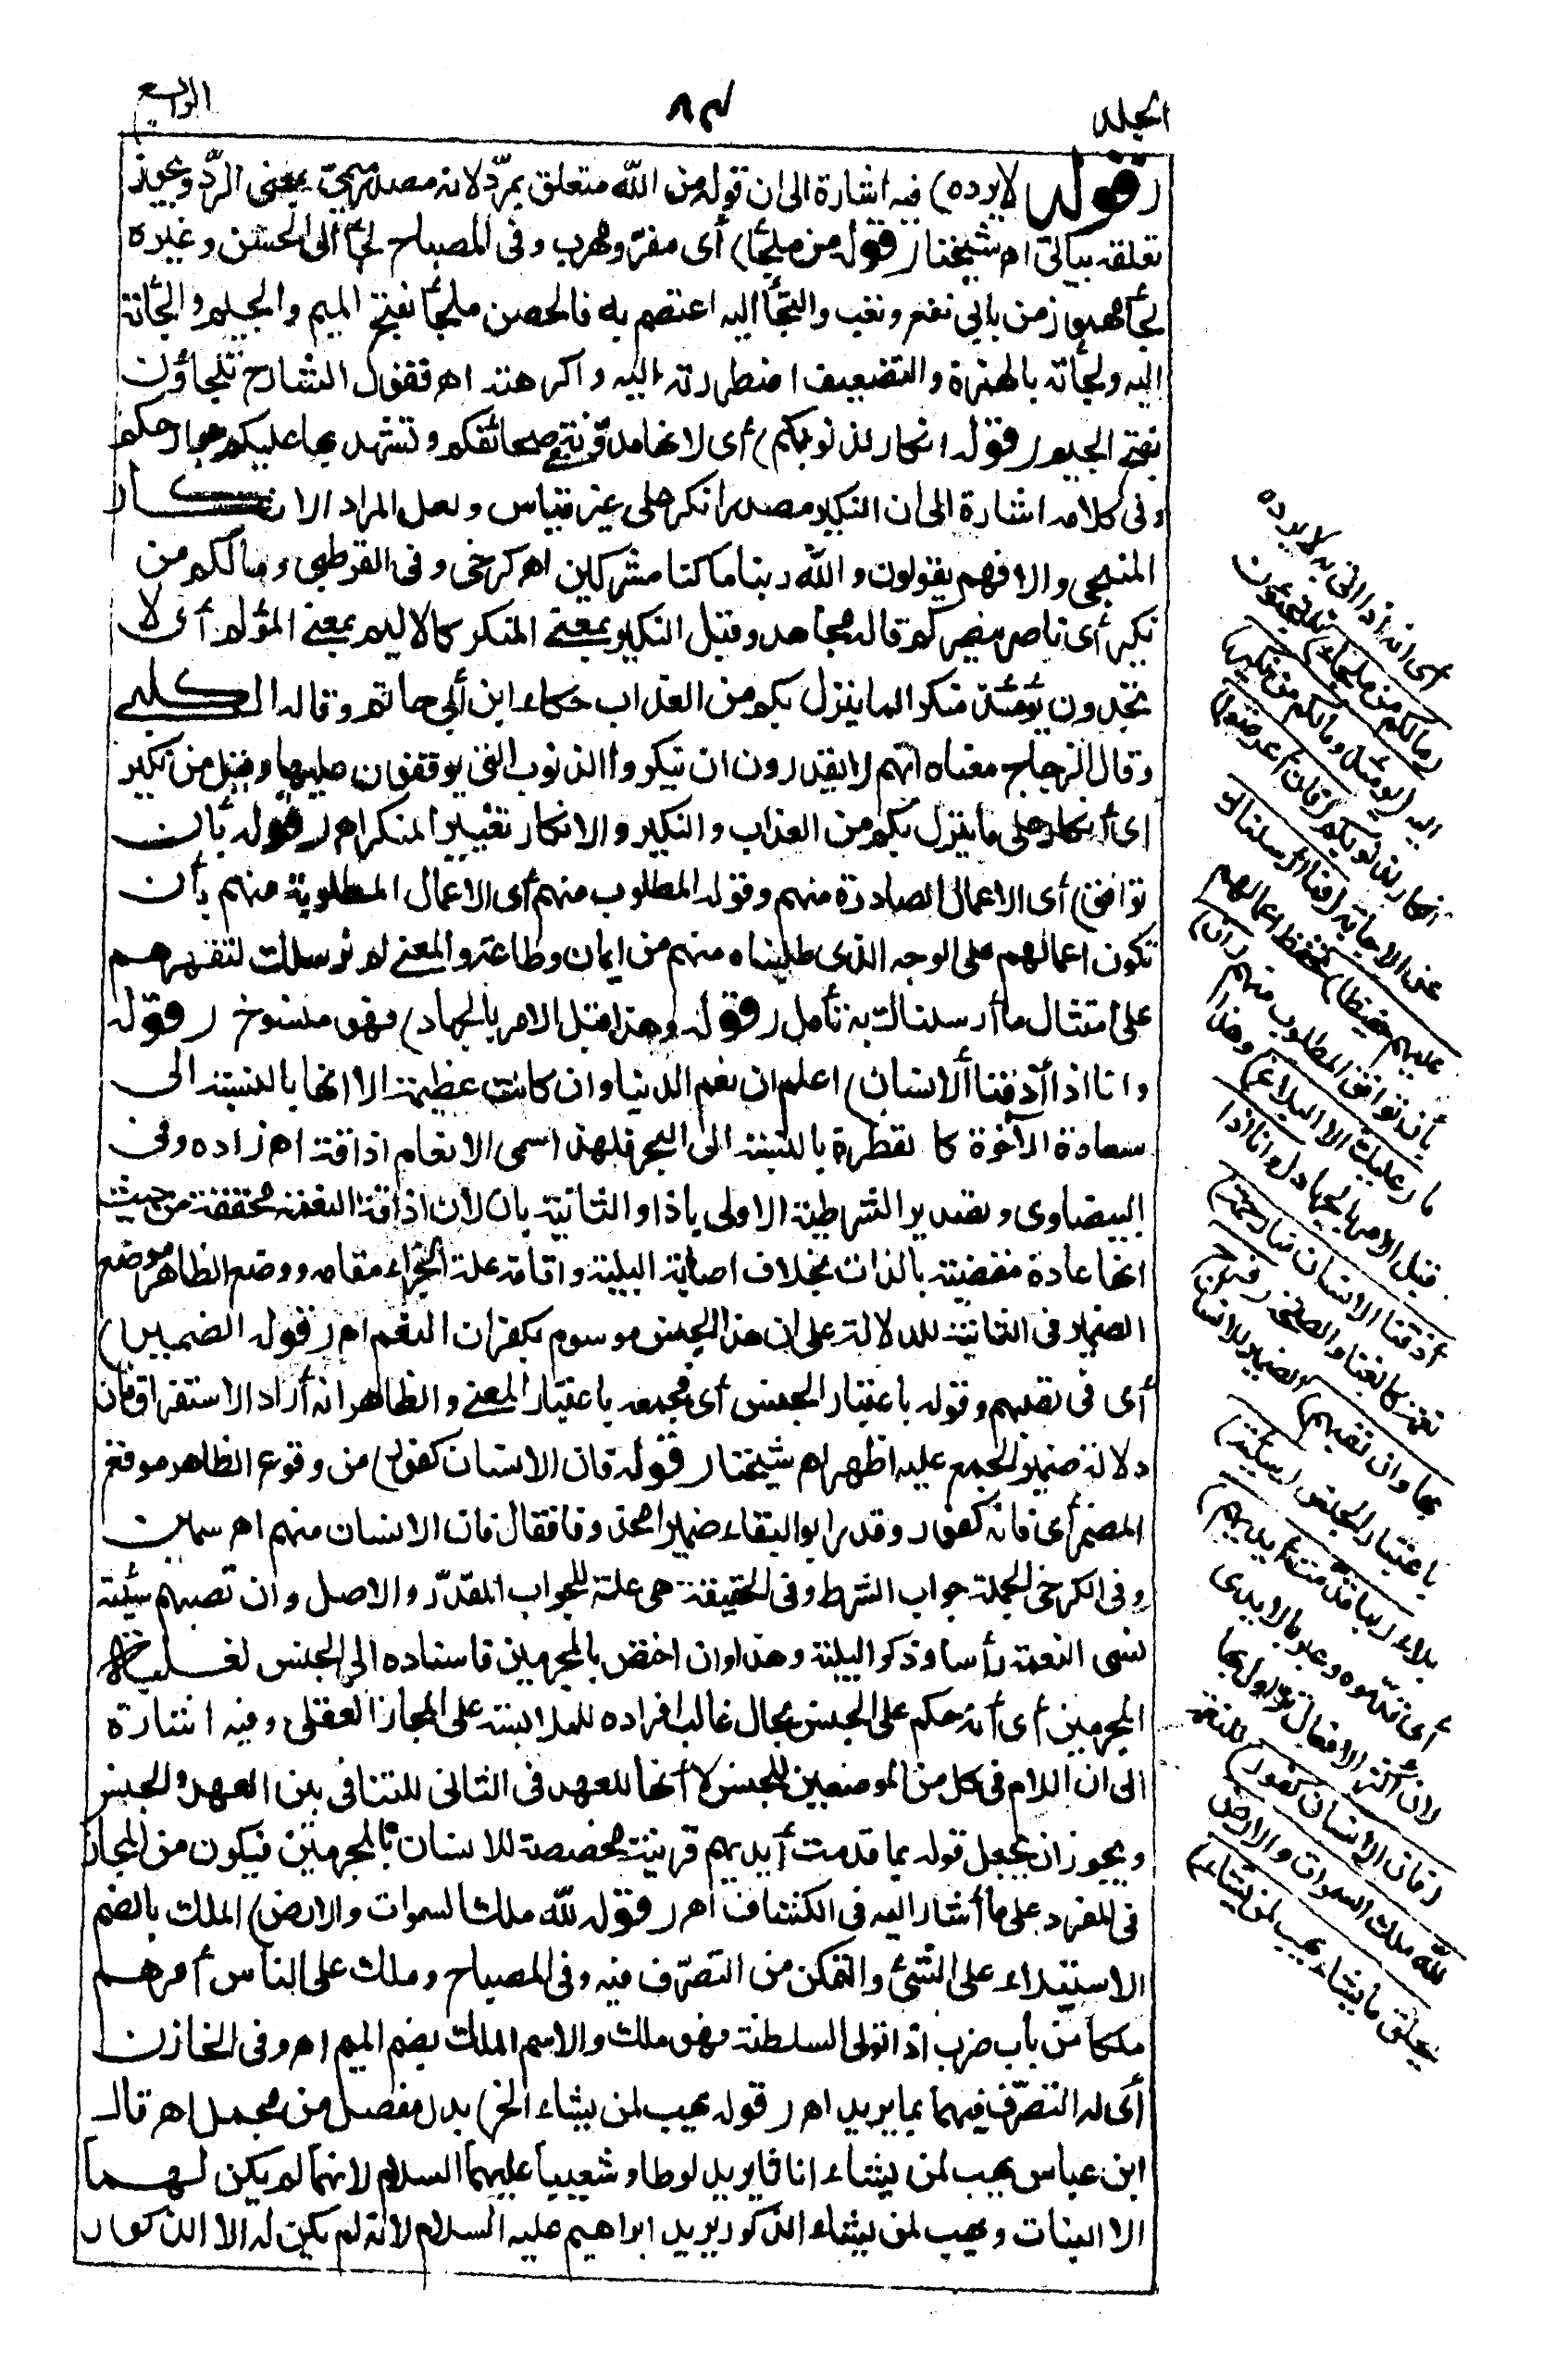 المجلد
٨٣
الرابع
(قوله لا يرده) فيه اشارة الى ان قوله من الله متعلق بمردّ لانه مصدر ميمي بمعنى الردّ ويجوز
تعلقه بيأتى اه شيخنا (قوله من ملجأ) أى مفرّ ومهرب وفى المصباح لجأ الى الحصن وغيره
لجأ مهموز من بابي نفع وتعب والتجأ اليه اعتصم به فالحصن ملجأ بفتح الميم والجيم والجأته
اليه ولجأته بالهمزة والتضعيف اضطررته اليه واكرهته اه فقول الشارح تلجاؤن
بفتح الجيم (قوله انكار لذنوبكم) أى لانها مدوّنة فى صحائفكم وتشهد بها عليكم جوارحكم
وفى كلامه اشارة الى ان النكير مصدر انكر على غير قياس ولعل المراد الانكار
المنجى والا فهم يقولون والله ربنا ما كنا مشركين اه كرخى وفى القرطبى ومالكم من
نكير أى ناصر ينصركم قاله مجاهد وقيل النكير بمعنى المنكر كالاليم بمعنى المؤلم أى لا
تجدون يومئذ منكرا لما ينزل بكم من العذاب حكاه ابن أبي حاتم وقاله الكلبى
وقال الزجاج معناه انهم لا يقدرون ان ينكروا الذنوب التى يوقفون عليها وقيل من نكير
اى انكار على ما ينزل بكم من العذاب والنكير والانكار تغيير المنكر اه (قوله بأن
توافق) أى الاعمال الصادرة منهم وقوله المطلوب منهم أى الاعمال المطلوبة منهم بأن
تكون اعمالهم على الوجه الذى طلبناه منهم من ايمان وطاعة والمعنى لم نرسلك لتقهرهم
على امتثال ما أرسلناك به تأمل (قوله وهذا قبل الامر بالجهاد) فهو منسوخ (قوله
وانا اذا أذقنا الانسان) اعلم ان نعم الدنيا وان كانت عظيمة الا انها بالنسبة الى
سعادة الآخرة كالقطرة بالنسبة الى البحر فلهذا سمى الانعام اذاقة اه زاده وفى
البيضاوى وتصدير الشرطية الاولى باذا والثانية بان لان اذاقة النعمة محققة من حيث
انها عادة مقضية بالذات بخلاف اصابة البلية واقامة علة الجزاء مقامه ووضع الظاهر موضع
الضمير فى الثانية للدلالة على ان هذا الجنس موسوم بكفران النعم اه (قوله الضمير)
أى فى تصبهم وقوله باعتبار الجنس أى فجمعه باعتبار المعنى والظاهر انه أراد الاستغراق فان
دلالة ضمير الجمع عليه اظهر اه شيخنا (قوله فان الانسان كفور) من وقوع الظاهر موقع
المضمر أى فانه كفور وقدر ابو البقاء ضميرا محذوفا فقال فان الانسان منهم اه سمين
وفى الكرخى الجملة جواب الشرط وفى الحقيقة هى علة للجواب المقدّر والاصل وان تصبهم سيئة
نسى النعمة رأسا وذكر البلية وهذا وان اختص بالمجرمين فاسناده الى الجنس لغلبة
المجرمين أى أنه حكم على الجنس بحال غالب افراده للملابسة على المجاز العقلى وفيه اشارة
الى ان اللام فى كل من الموضعين للجنس لا أنها للعهد فى الثانى للتنافى بين العهد والجنس
ويجوز ان يجعل قوله بما قدمت أيديهم قرينة مخصصة للانسان بالمجرمين فيكون من المجاز
فى المفرد على ما أشار اليه فى الكشاف اه (قوله لله ملك السموات والارض) الملك بالضم
الاستيلاء على الشئ والتمكن من التصرّف فيه وفى المصباح وملك على الناس أمرهم
ملكا من باب ضرب اذا تولى السلطنة فهو ملك والاسم الملك بضم الميم اه وفى الخازن
أى له التصرّف فيهما بما يريد اه (قوله يهب لمن يشاء الخ) بدل مفصل من مجمل اه قال
ابن عباس يهب لمن يشاء اناثا يريد لوطا وشعيبا عليهما السلام لانهما لم يكن لهما
الا البنات ويهب لمن يشاء الذكور يريد ابراهيم عليه السلام لانه لم يكن له الا الذكور
أى انه اذا اتى به لا يرده
(مالكم من ملجأ) تلجئون
اليه (يومئذ ومالكم من نكير)
انكار لذنوبكم (فان أعرضوا)
عن الاجابة (فما أرسلناك
عليهم حفيظا) تحفظ اعمالهم
بأن توافق المطلوب منهم (ان)
ما (عليك الا البلاغ) وهذا
قبل الامر بالجهاد (وانا اذا
أذقنا الانسان منا رحمة)
نعمة كالغنا والصحة (فرح
بها وان تصبهم) الضمير للانسان
باعتبار الجنس (سيئة)
بلاء (بما قدّمت أيديهم)
أى قدّموه وعبر بالايدى
لان أكثر الافعال تزاول بها
(فان الانسان كفور) للنعمة
لله ملك السموات والارض
يخلق ما يشاء يهب لمن يشاء)